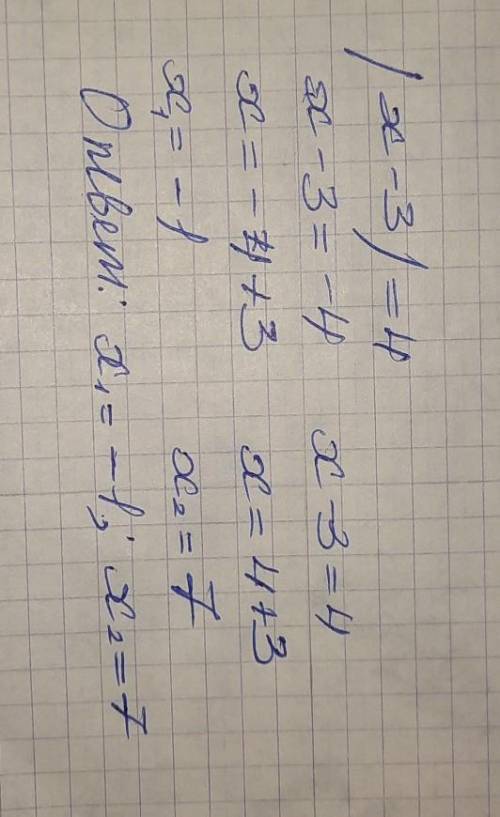 |x-3|=4
x-3=-4 x 3=4
x=-4+3 x=4+3
x₁=-1 x₂=7
Ответ: x₁=-1; x₂=7